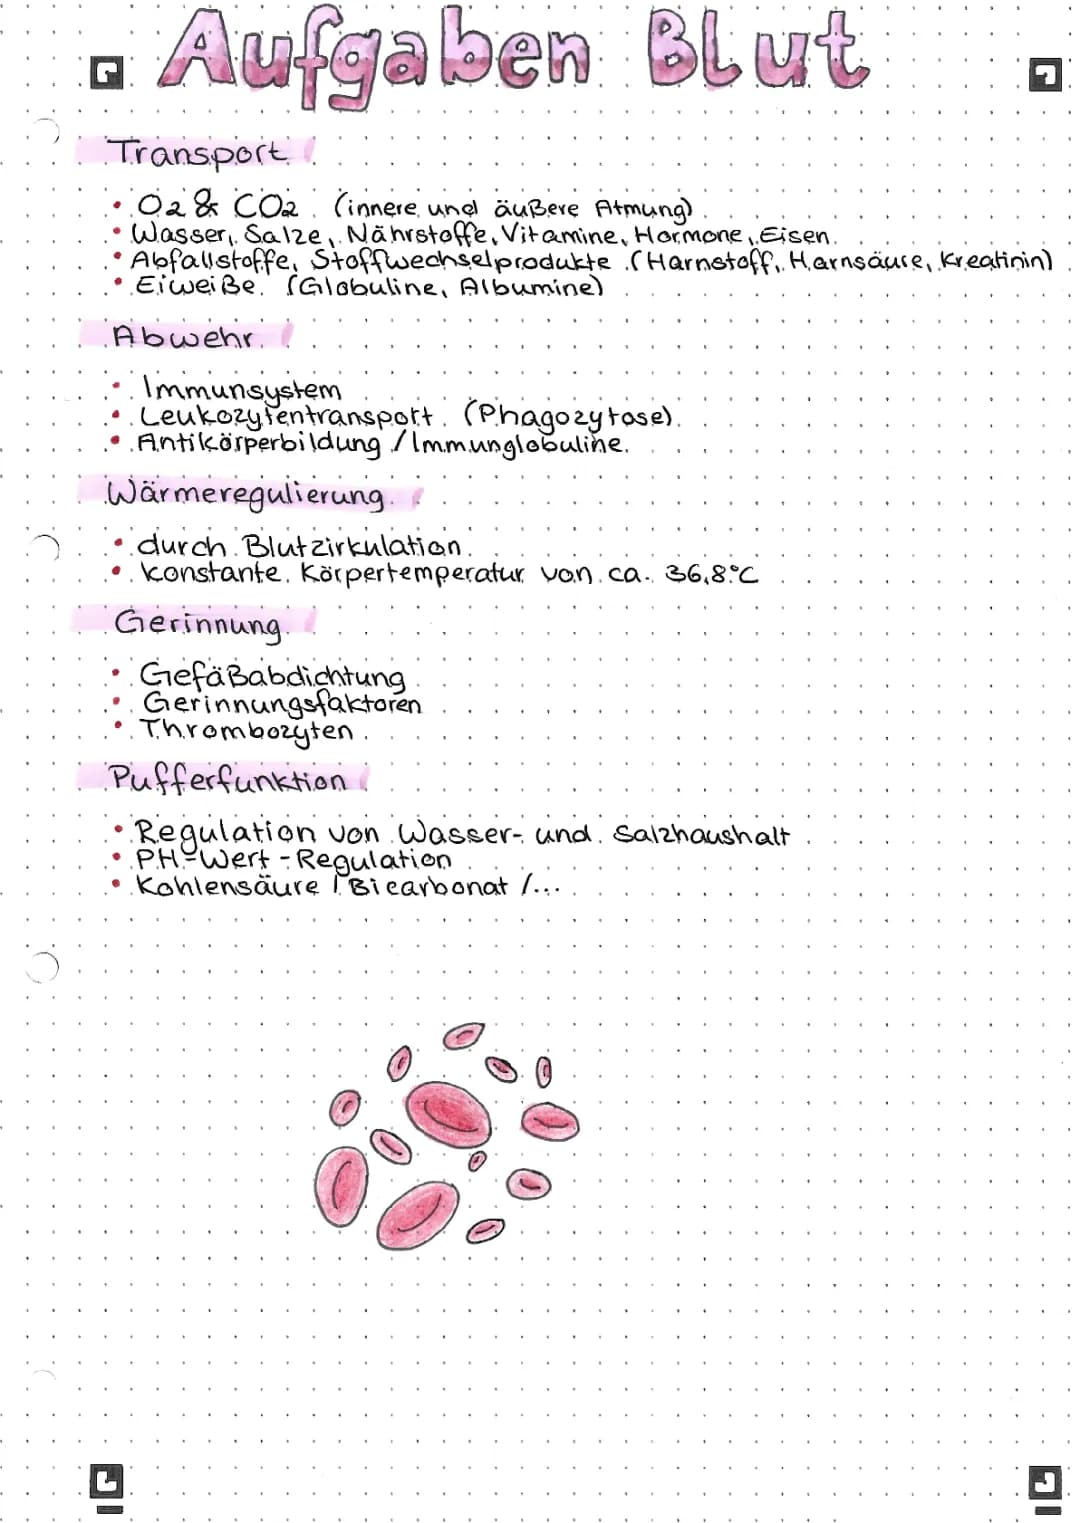 Aufgaben Blut
Transport
• O2 & CO2 (innere und äußere Atmung)
• Wasser, Salze, Nährstoffe, Vitamine, Hormone, Eisen
• Abfallstoffe, Stoffwechselprodukte (Harnstoff, Harnsäure, Kreatinin)
• Eiweiße (Globuline, Albumine)
Abwehr
• Immunsystem
• Leukozytentransport (Phagozytose)
• Antikörperbildung / Immunglobuline
Wärmeregulierung
• durch Blutzirkulation
• konstante Körpertemperatur von ca. 36,8°C
Gerinnung
• Gefäßabdichtung
• Gerinnungsfaktoren
• Thrombozyten
Pufferfunktion
• Regulation von Wasser- und Salzhaushalt
• PH-Wert-Regulation
• Kohlensäure / Bicarbonat /...